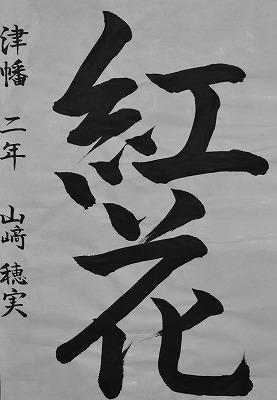 紅花
津幡 二年 山﨑 穂実